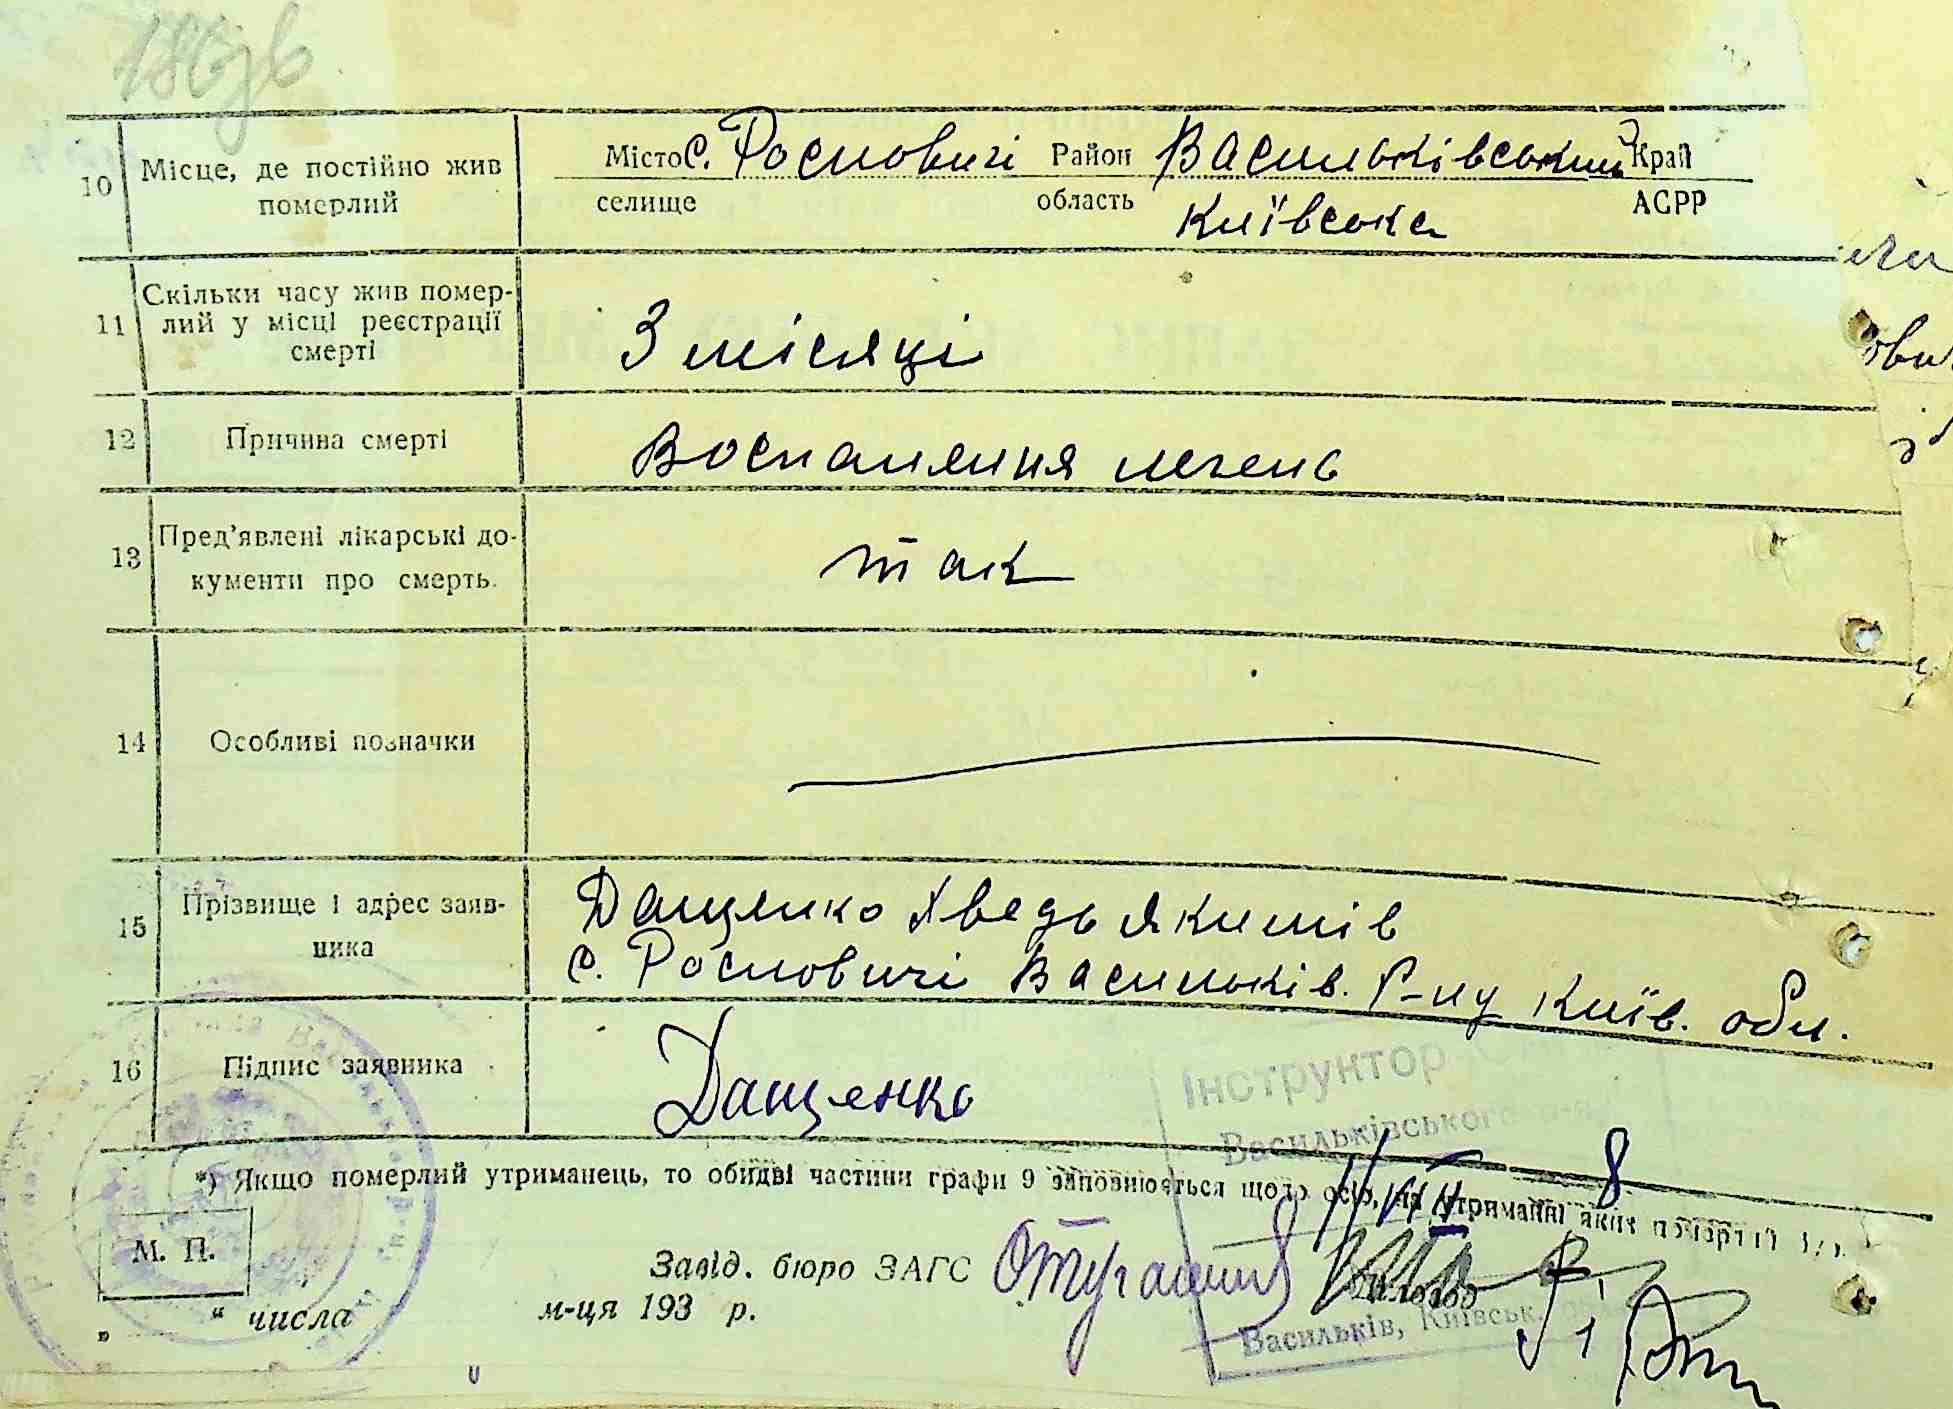 10 Місце, де постійно жив померлий
Місто с. Росновичі Район Васильківський Край
селище область Київська АСРР
11 Скільки часу жив помер-
лий у місці реєстрації
смерті
3 місяці
12 Причина смерті
Воспалення легень
13 Пред'явлені лікарські до-
кументи про смерть.
так
14 Особливі позначки
15 Прізвище і адрес заяв-
ника
Дащенко Хведь Якимів
с. Росновичі Васильків. р-ну Київ. обл.
16 Підпис заявника
Дащенко
Інструктор
Васильківського
*) Якщо померлий утриманець, то обидві частини графи 9 заповнюється щодо осіб, на утриманні яких
8
М. П.
Завід. бюро ЗАГС
„ “ числа м-ця 193 р.
Васильків, Київськ.